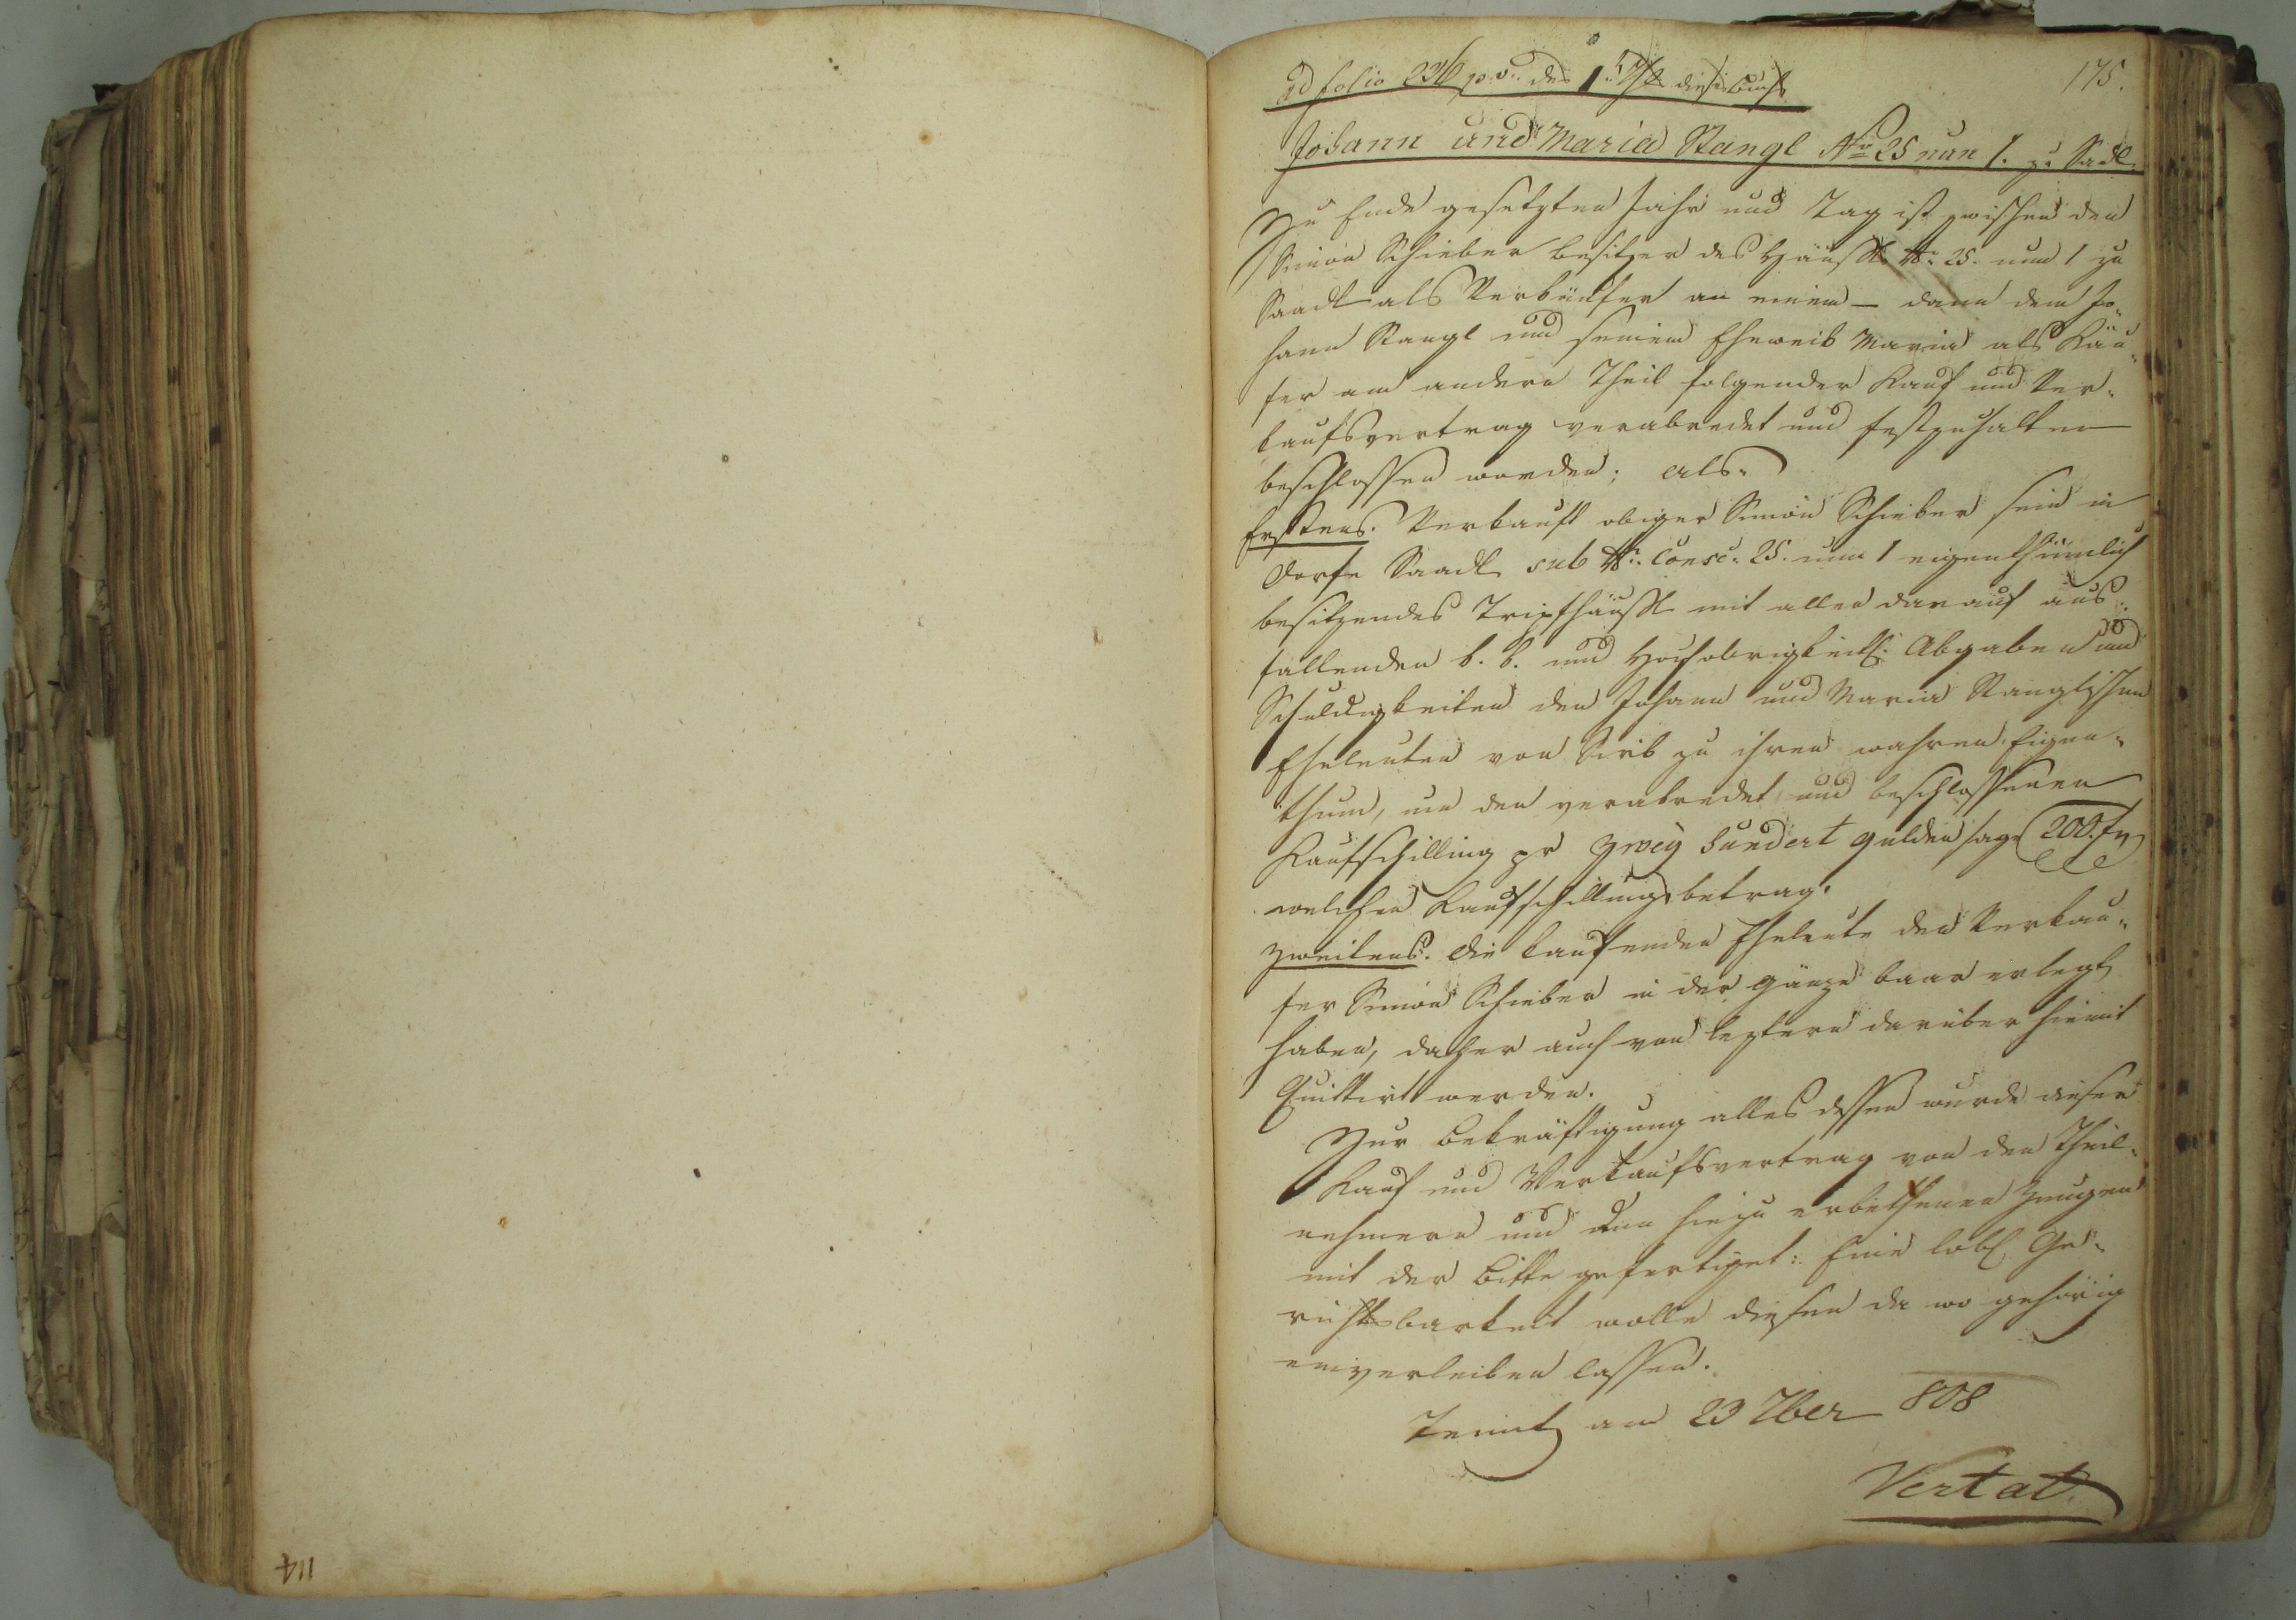 ad folio 236 p.v. des 1. dieses Buchs
175.
Johann und Maria Stangl Nro 25 nun 1. zu Sadl
Zu Ende gesetzten Jahr und Tag ist zwischen den
Simon Schieber Besitzer des Häusl N: 25. nun 1 zu
Saadl als Verkäufer an einem – dann dem Jo-
hann Stangl und seinem Eheweib Maria als Käu-
fer am andern Theil folgender Kauf und Ver-
kaufsvertrag verabredet und festzuhalten
beschlossen worden; als.
Erstens. Verkauft obiger Simon Schieber sein in
Dorfe Saadl sub N: Consc: 25. nun 1 eigenthümlich
besitzendes Tripfhäusl mit allen darauf aus-
fallenden k. k. und Hochobrigkeitl: Abgaben und
Schuldigkeiten den Johann und Maria Stanglischen
Eheleuten von zu ihren wahren Eigen-
thum, um den verabredet und beschlossenen
Kaufschilling pr Zwey hundert Gulden sage 200. fr
welchen Kaufschillingsbetrag.
Zweitens. Die kaufenden Eheleute den Verkäu-
fer Simon Schieber in der Gänze baar erlegt
haben, daher auch von letztern darüber hiemit
Quittirt werden.
Zur Bekräftigung alles dessen wurde dieser
Kauf und Verkaufsvertrag von den Theil-
nehmern und den hiezu erbethenen Zeugen
mit der Bitte gefertiget: Eine löbl. Ge-
richtsbarkeit wolle diesen da wo gehörig
einverleiben lassen.
am 23 7ber 808
Vertat.
114